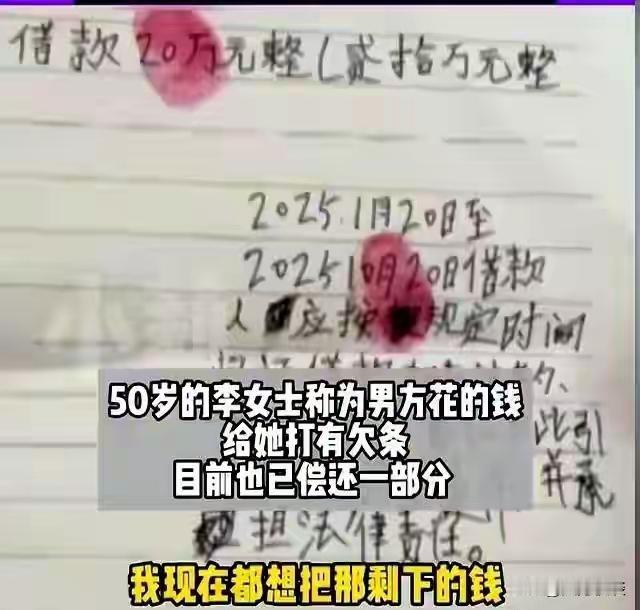 借款20万元整(贰拾万元整
2025.1月20日至
202510月20日借款
人应按规定时间
50岁的李女士称为男方花的钱
给她打有欠条
目前也已偿还一部分
此引
并承
担法律责任。
我现在都想把那剩下的钱